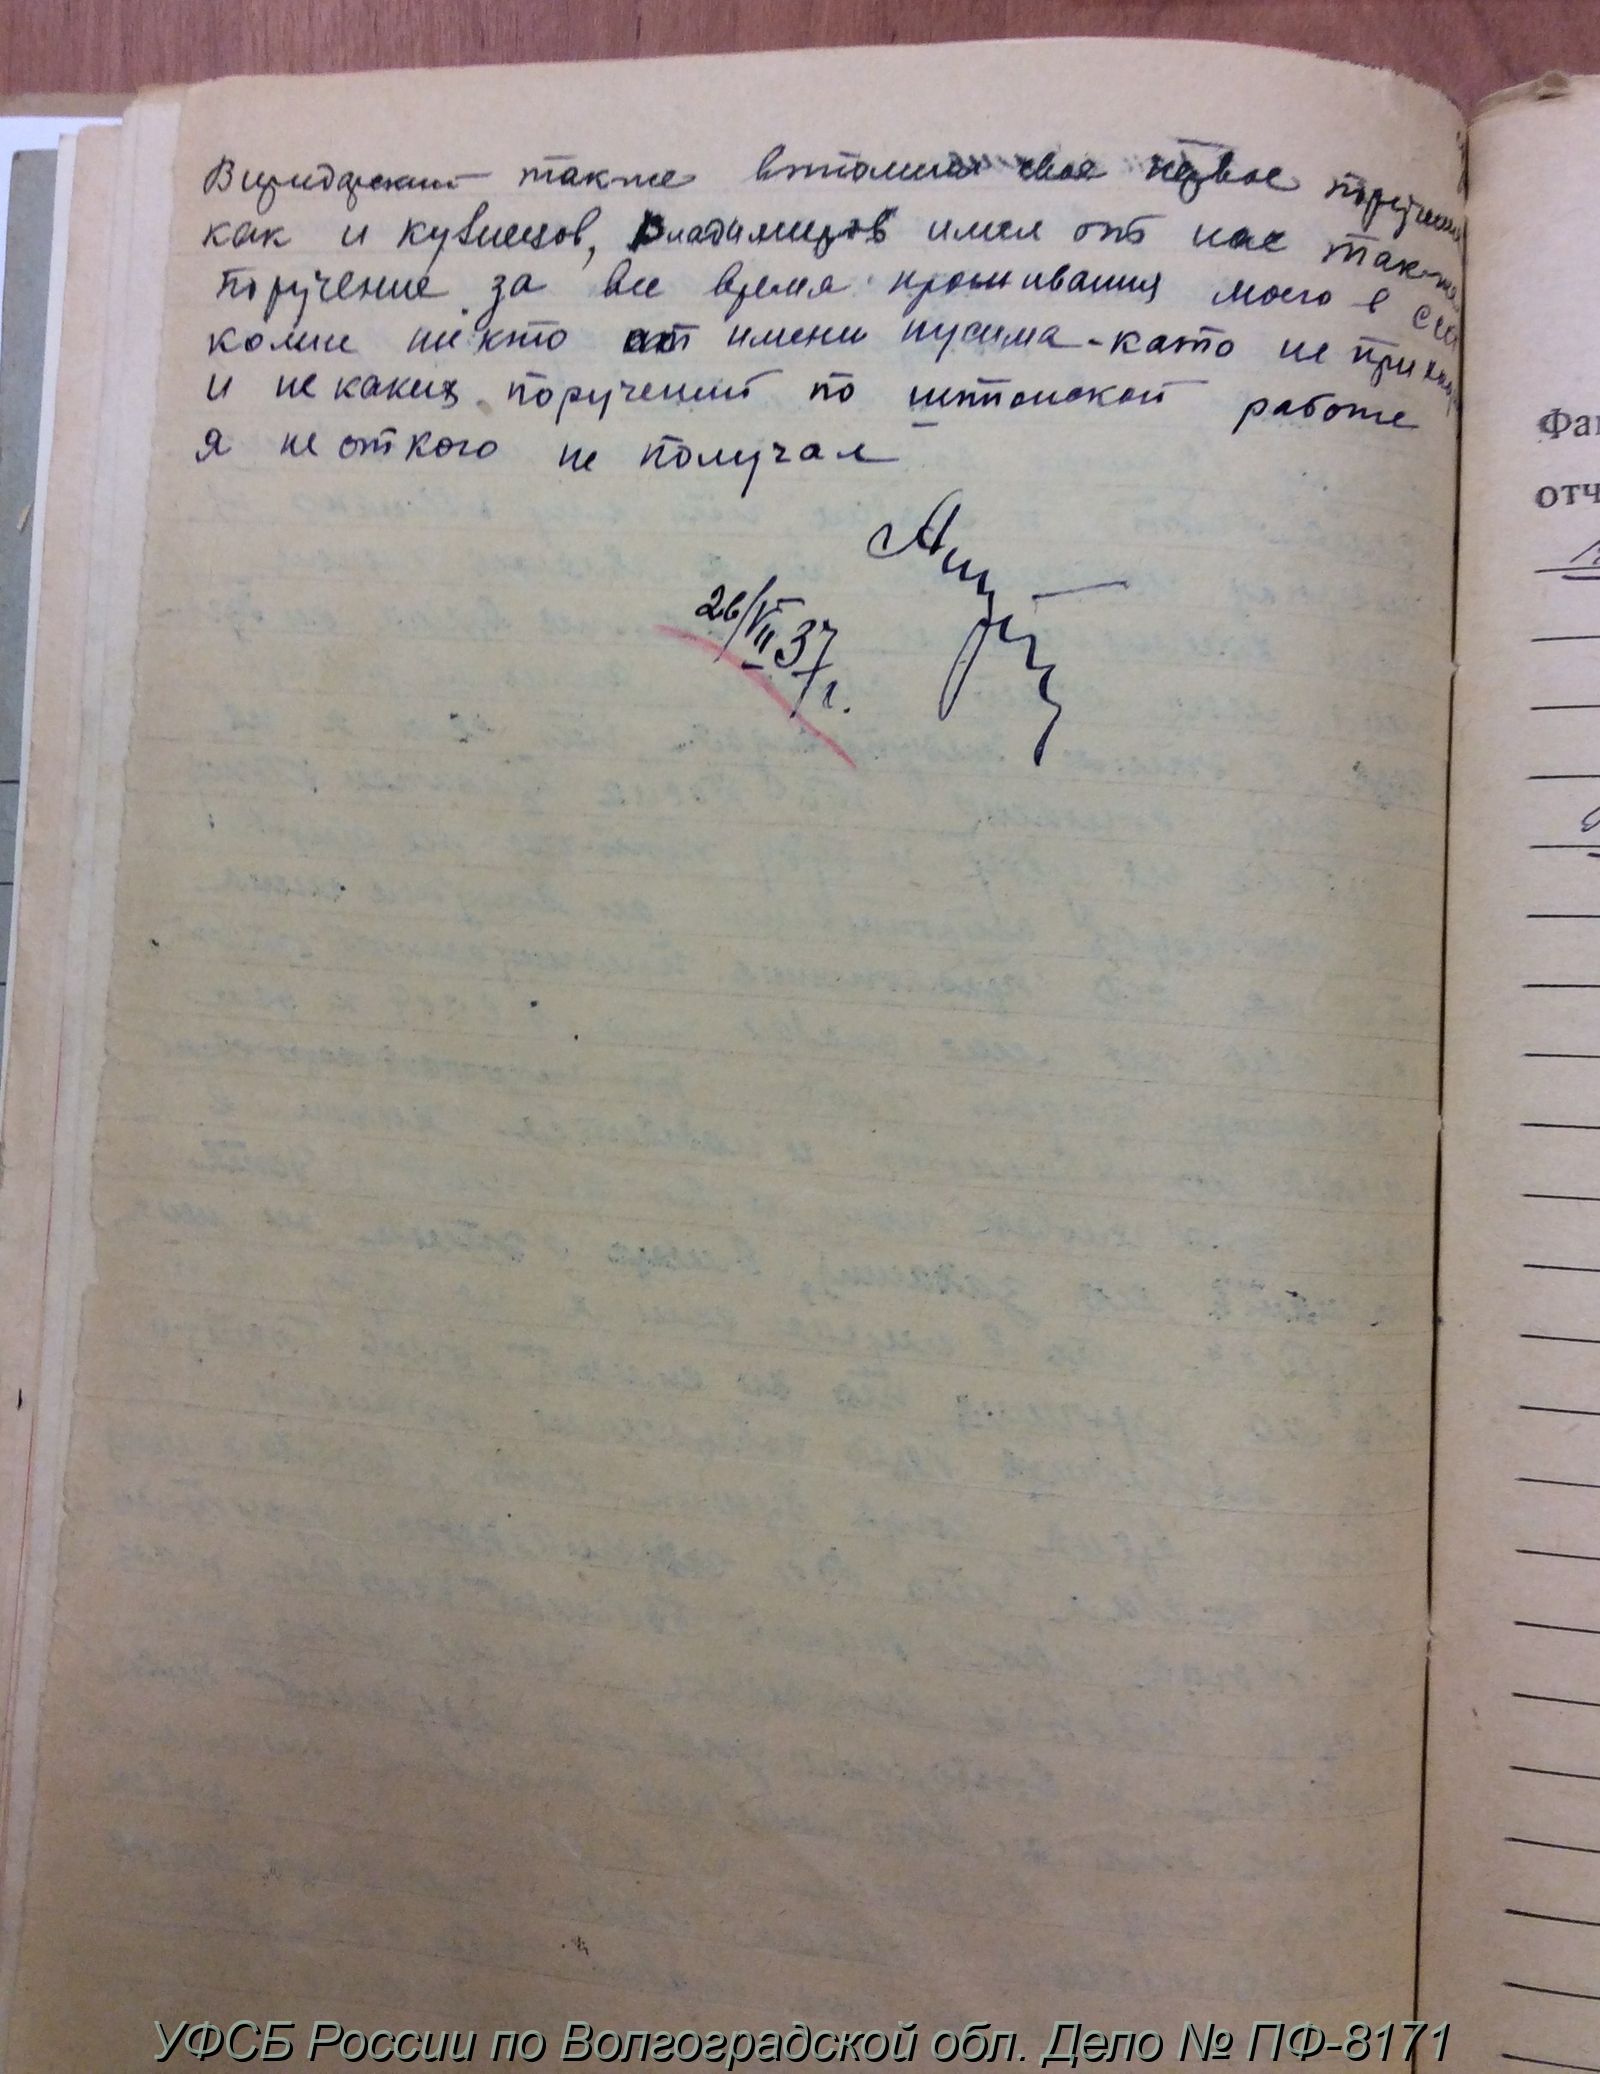 также своя первое поручение
как и кувнецов, Владимиров имел от нас также
поручение за все время проживания моего в
никто от имени нусима-като не приход
и не каких поручений по шпионской работе
я не откого не получал
26/VII 37 г.
Фа
отч
УФСБ России по Волгоградской обл. Дело № ПФ-8171